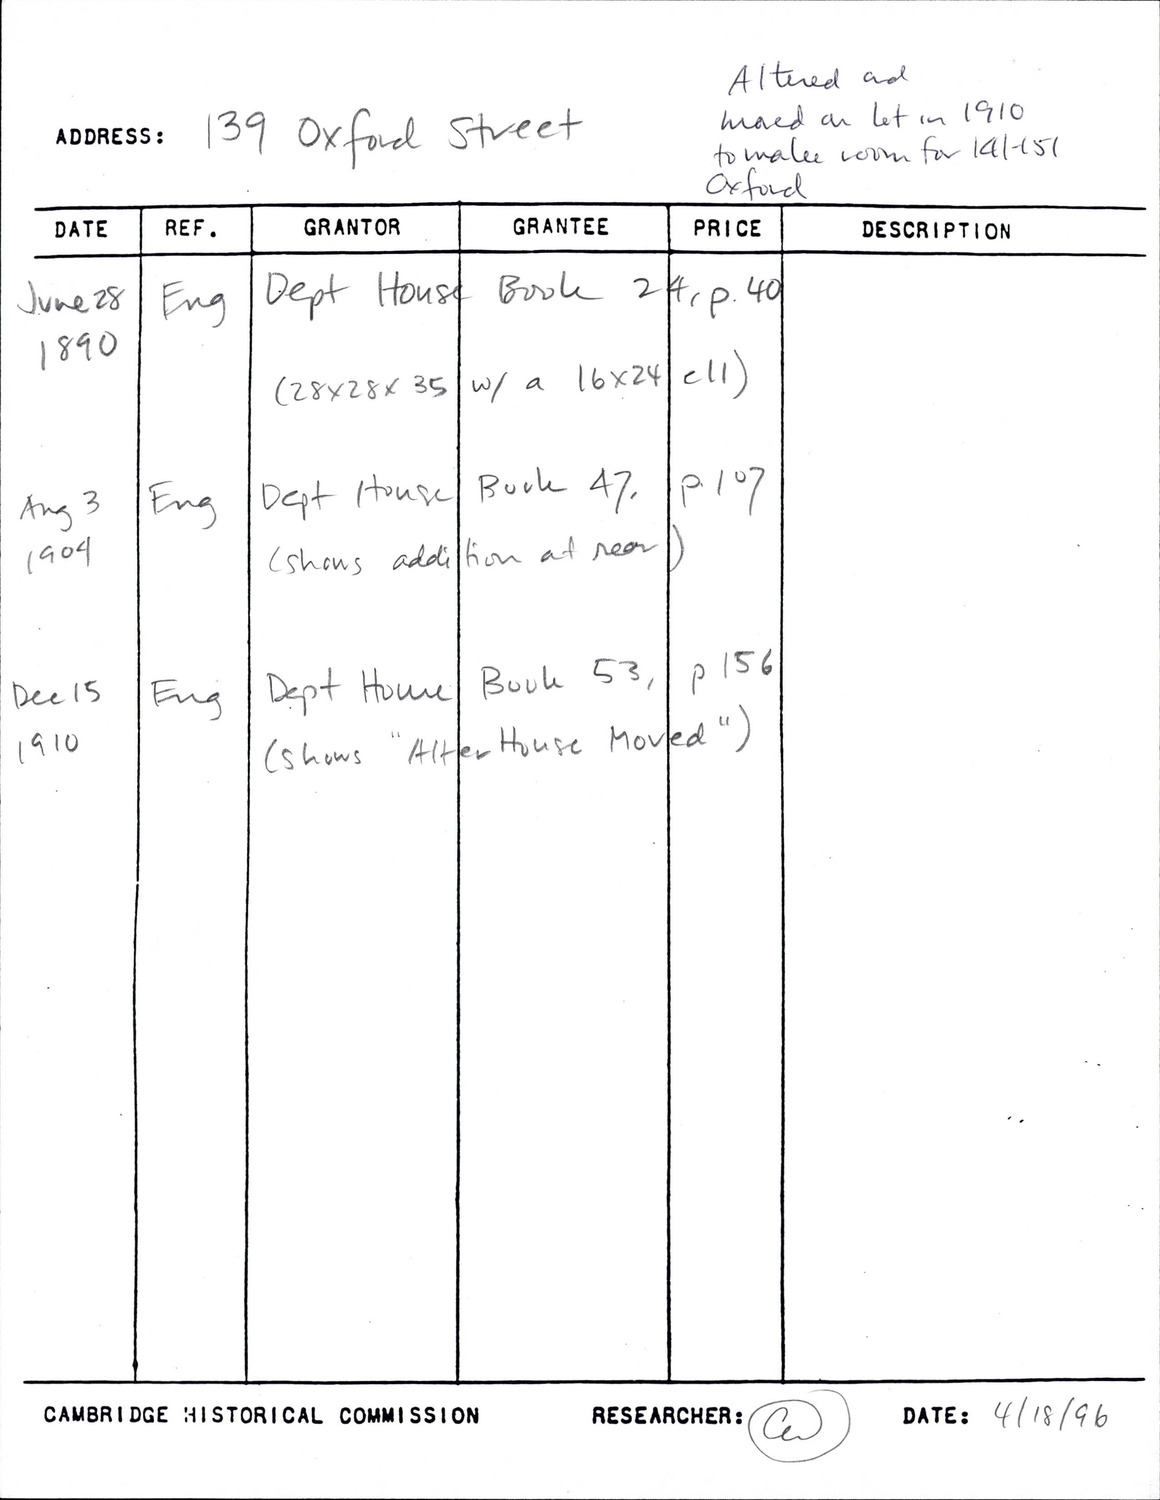 Altered and
ADDRESS: 139 Oxford Street
moved on lot in 1910
to make room for 141-151
Oxford
DATE REF. GRANTOR GRANTEE PRICE DESCRIPTION
June 28 Eng Dept House Book 24, p. 40
1890
(28x28x35 w/ a 16x24 ell)
Aug 3 Eng Dept House Book 47, p. 107
1904 (shows addition at rear)
Dec 15 Eng Dept House Book 53, p 156
1910 (shows "Alter House Moved")
CAMBRIDGE HISTORICAL COMMISSION RESEARCHER: DATE: 4/18/96